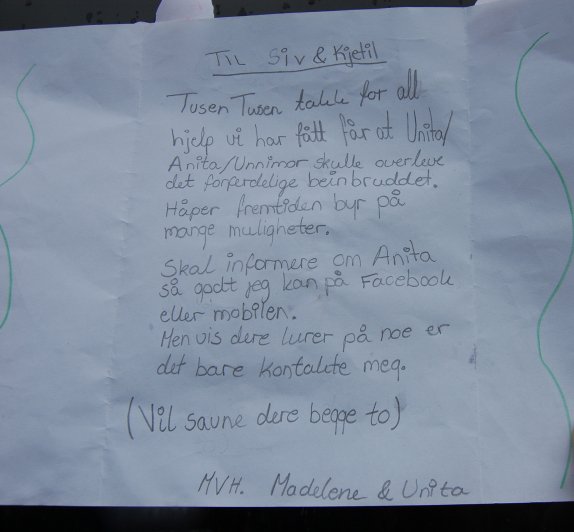 TIL Siv & Kjetil
Tusen Tusen takk for all
hjelp vi har fått får at Unita/
Anita/Unnimor skulle overleve
det forferdelige beinbruddet.
Håper fremtiden byr på
mange muligheter.
Skal informere om Anita
så godt jeg kan på Facebook
eller mobilen.
Men vis dere lurer på noe er
det bare kontakte meg.
(Vil savne dere begge to)
MVH. Madelene & Unita